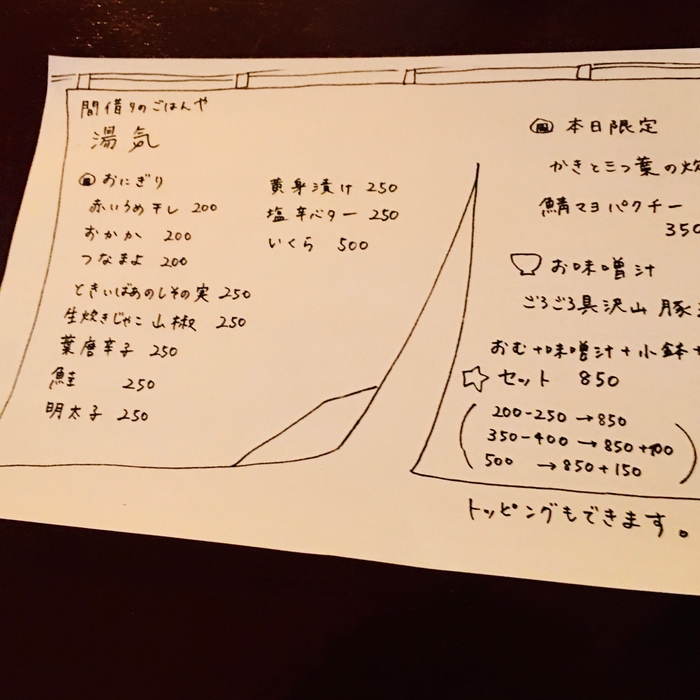 間借りのごはんや
湯気
おにぎり
赤いうめ干し 200
おかか 200
つなまよ 200
ときいばあのしその実 250
生炊きじゃこ山椒 250
葉唐辛子 250
鮭 250
明太子 250
黄身漬け 250
塩辛バター 250
いくら 500
本日限定
かきと三つ葉の炊
鯖マヨパクチー
350
お味噌汁
ごろごろ具沢山 豚
おむ+味噌汁+小鉢+
セット 850
200-250 →850
350-400 →850+100
500 →850+150
トッピングもできます。